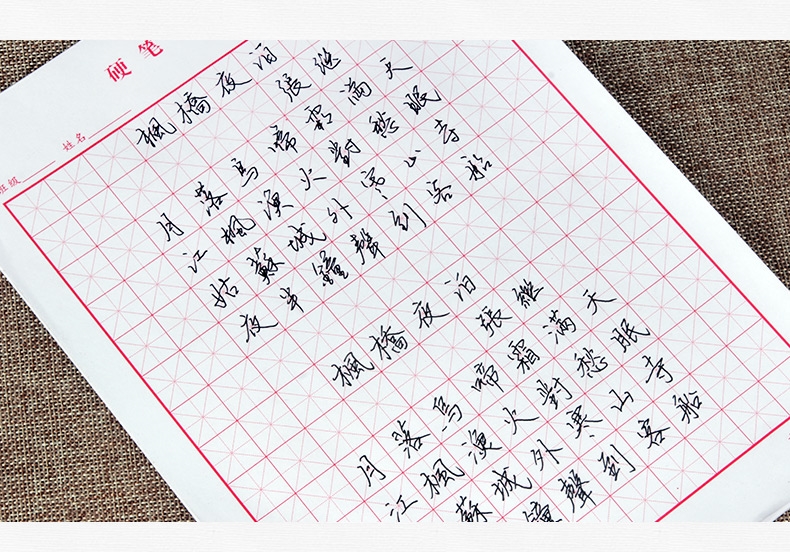 硬笔
班级 姓名
楓橋夜泊 張继
月落烏啼霜满天
江楓漁火對愁眠
姑蘇城外寒山寺
夜半鐘聲到客船
楓橋夜泊 張繼
月落烏啼霜滿天
江楓漁火對愁眠
蘇城外寒山寺
鐘聲到客船